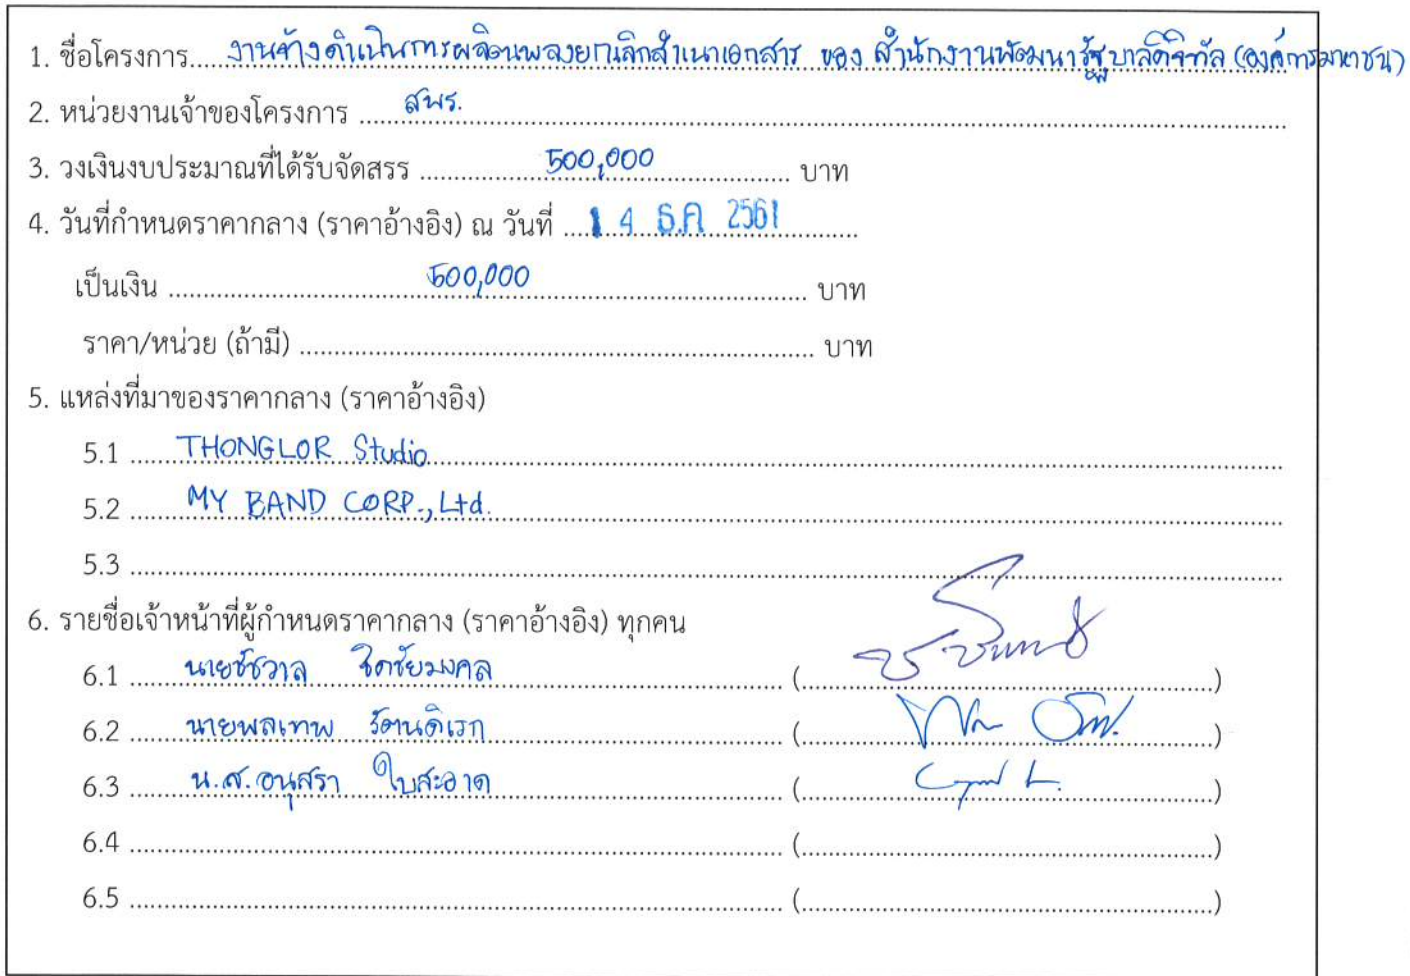 1. ชื่อโครงการ.....งานจ้างดำเนินการผลิตเพลงยกเลิกสำเนาเอกสาร ของ สำนักงานพัฒนารัฐบาลดิจิทัล (องค์การมหาชน)
2. หน่วยงานเจ้าของโครงการ .....สพร.
3. วงเงินงบประมาณที่ได้รับจัดสรร .....500,000..... บาท
4. วันที่กำหนดราคากลาง (ราคาอ้างอิง) ณ วันที่ .....14 ธ.ค 2561.....
เป็นเงิน .....500,000..... บาท
ราคา/หน่วย (ถ้ามี) ..... บาท
5. แหล่งที่มาของราคากลาง (ราคาอ้างอิง)
5.1 .....THONGLOR Studio.....
5.2 .....MY BAND CORP., Ltd.....
5.3 .....
6. รายชื่อเจ้าหน้าที่ผู้กำหนดราคากลาง (ราคาอ้างอิง) ทุกคน
6.1 .....นายชัชวาล จิตชัยมงคล..... (.....)
6.2 .....นายพลเทพ รัตนดิเรก..... (.....)
6.3 .....น.ส. อนุสรา ใบสะอาด..... (.....)
6.4 ..... (.....)
6.5 ..... (.....)